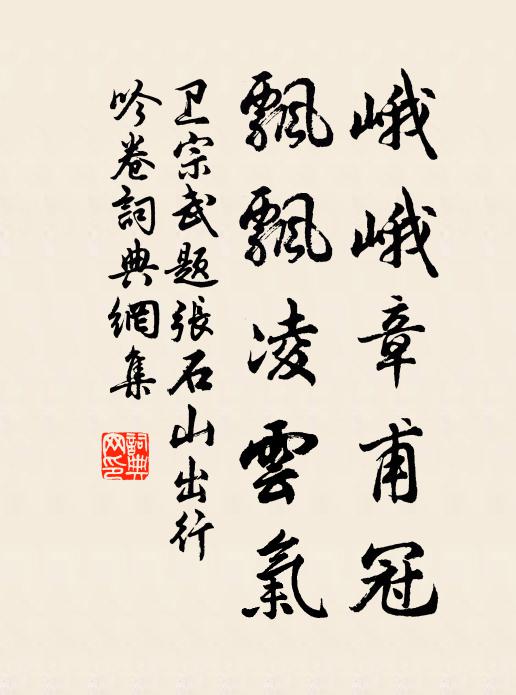 峨峨章甫冠
飄飄凌雲氣
卫宗武题張石山出行
吟卷詞典網集
詞典
网印